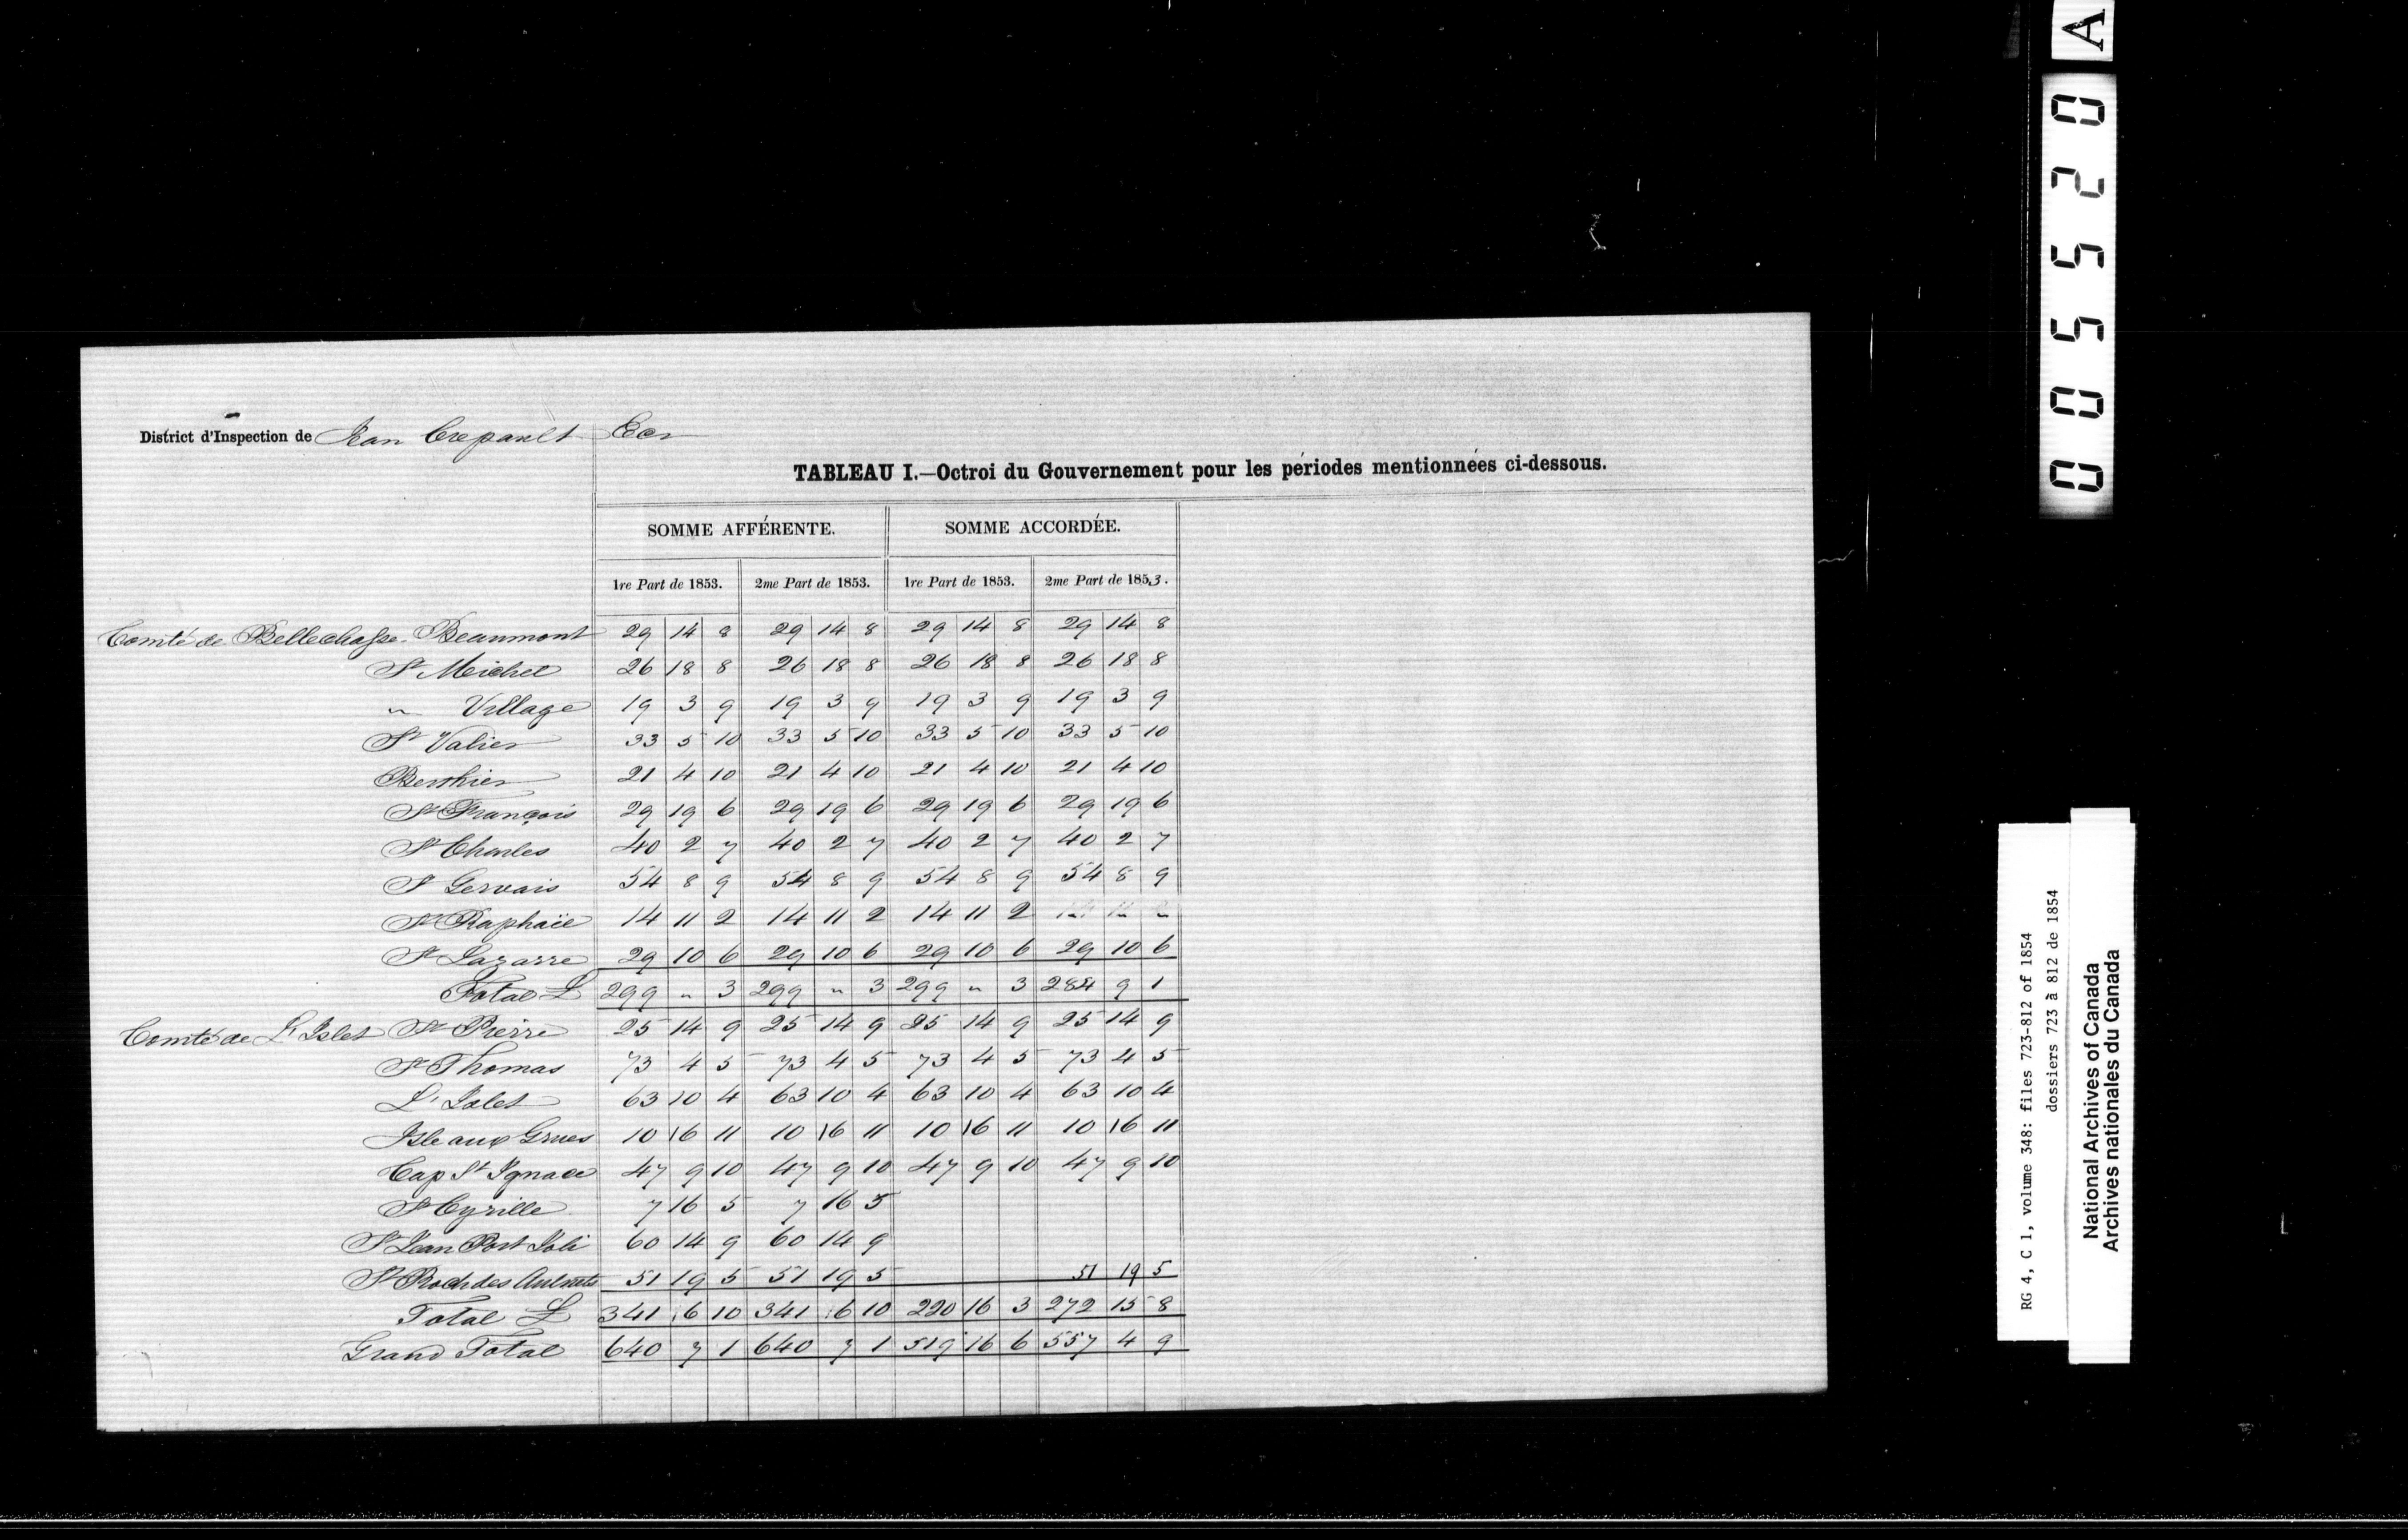 District d'Inspection de Jean Crepault Ecr
TABLEAU I.—Octroi du Gouvernement pour les périodes mentionnées ci-dessous.
SOMME AFFÉRENTE. SOMME ACCORDÉE.
1re Part de 1853. 2me Part de 1853. 1re Part de 1853. 2me Part de 1853.
Comté de Bellechasse Beaumont 29 14 8 29 14 8 29 14 8 29 14 8
St Michel 26 18 8 26 18 8 26 18 8 26 18 8
" Village 19 3 9 19 3 9 19 3 9 19 3 9
St Valier 33 5 10 33 5 10 33 5 10 33 5 10
Berthier 21 4 10 21 4 10 21 4 10 21 4 10
St François 29 19 6 29 19 6 29 19 6 29 19 6
St Charles 40 2 7 40 2 7 40 2 7 40 2 7
St Gervais 54 8 9 54 8 9 54 8 9 54 8 9
St Raphaël 14 11 2 14 11 2 14 11 2
St Lazarre 29 10 6 29 10 6 29 10 6 29 10 6
Total £ 299 " 3 299 " 3 299 " 3 284 9 1
Comté de L'Islet St Pierre 25 14 9 25 14 9 25 14 9 25 14 9
St Thomas 73 4 5 73 4 5 73 4 5 73 4 5
L'Islet 63 10 4 63 10 4 63 10 4 63 10 4
Isle aux Grues 10 16 11 10 16 11 10 16 11 10 16 11
Cap St Ignace 47 9 10 47 9 10 47 9 10 47 9 10
St Cyrille 7 16 5 7 16 5
St Jean Port Joli 60 14 9 60 14 9
St Roch des Aulnets 51 19 5 51 19 5 51 19 5
Total £ 341 6 10 341 6 10 220 16 3 272 15 8
Grand Total 640 7 1 640 7 1 519 16 6 557 4 9
005520
A
RG 4, C 1, volume 348: files 723-812 of 1854
dossiers 723 à 812 de 1854
National Archives of Canada
Archives nationales du Canada